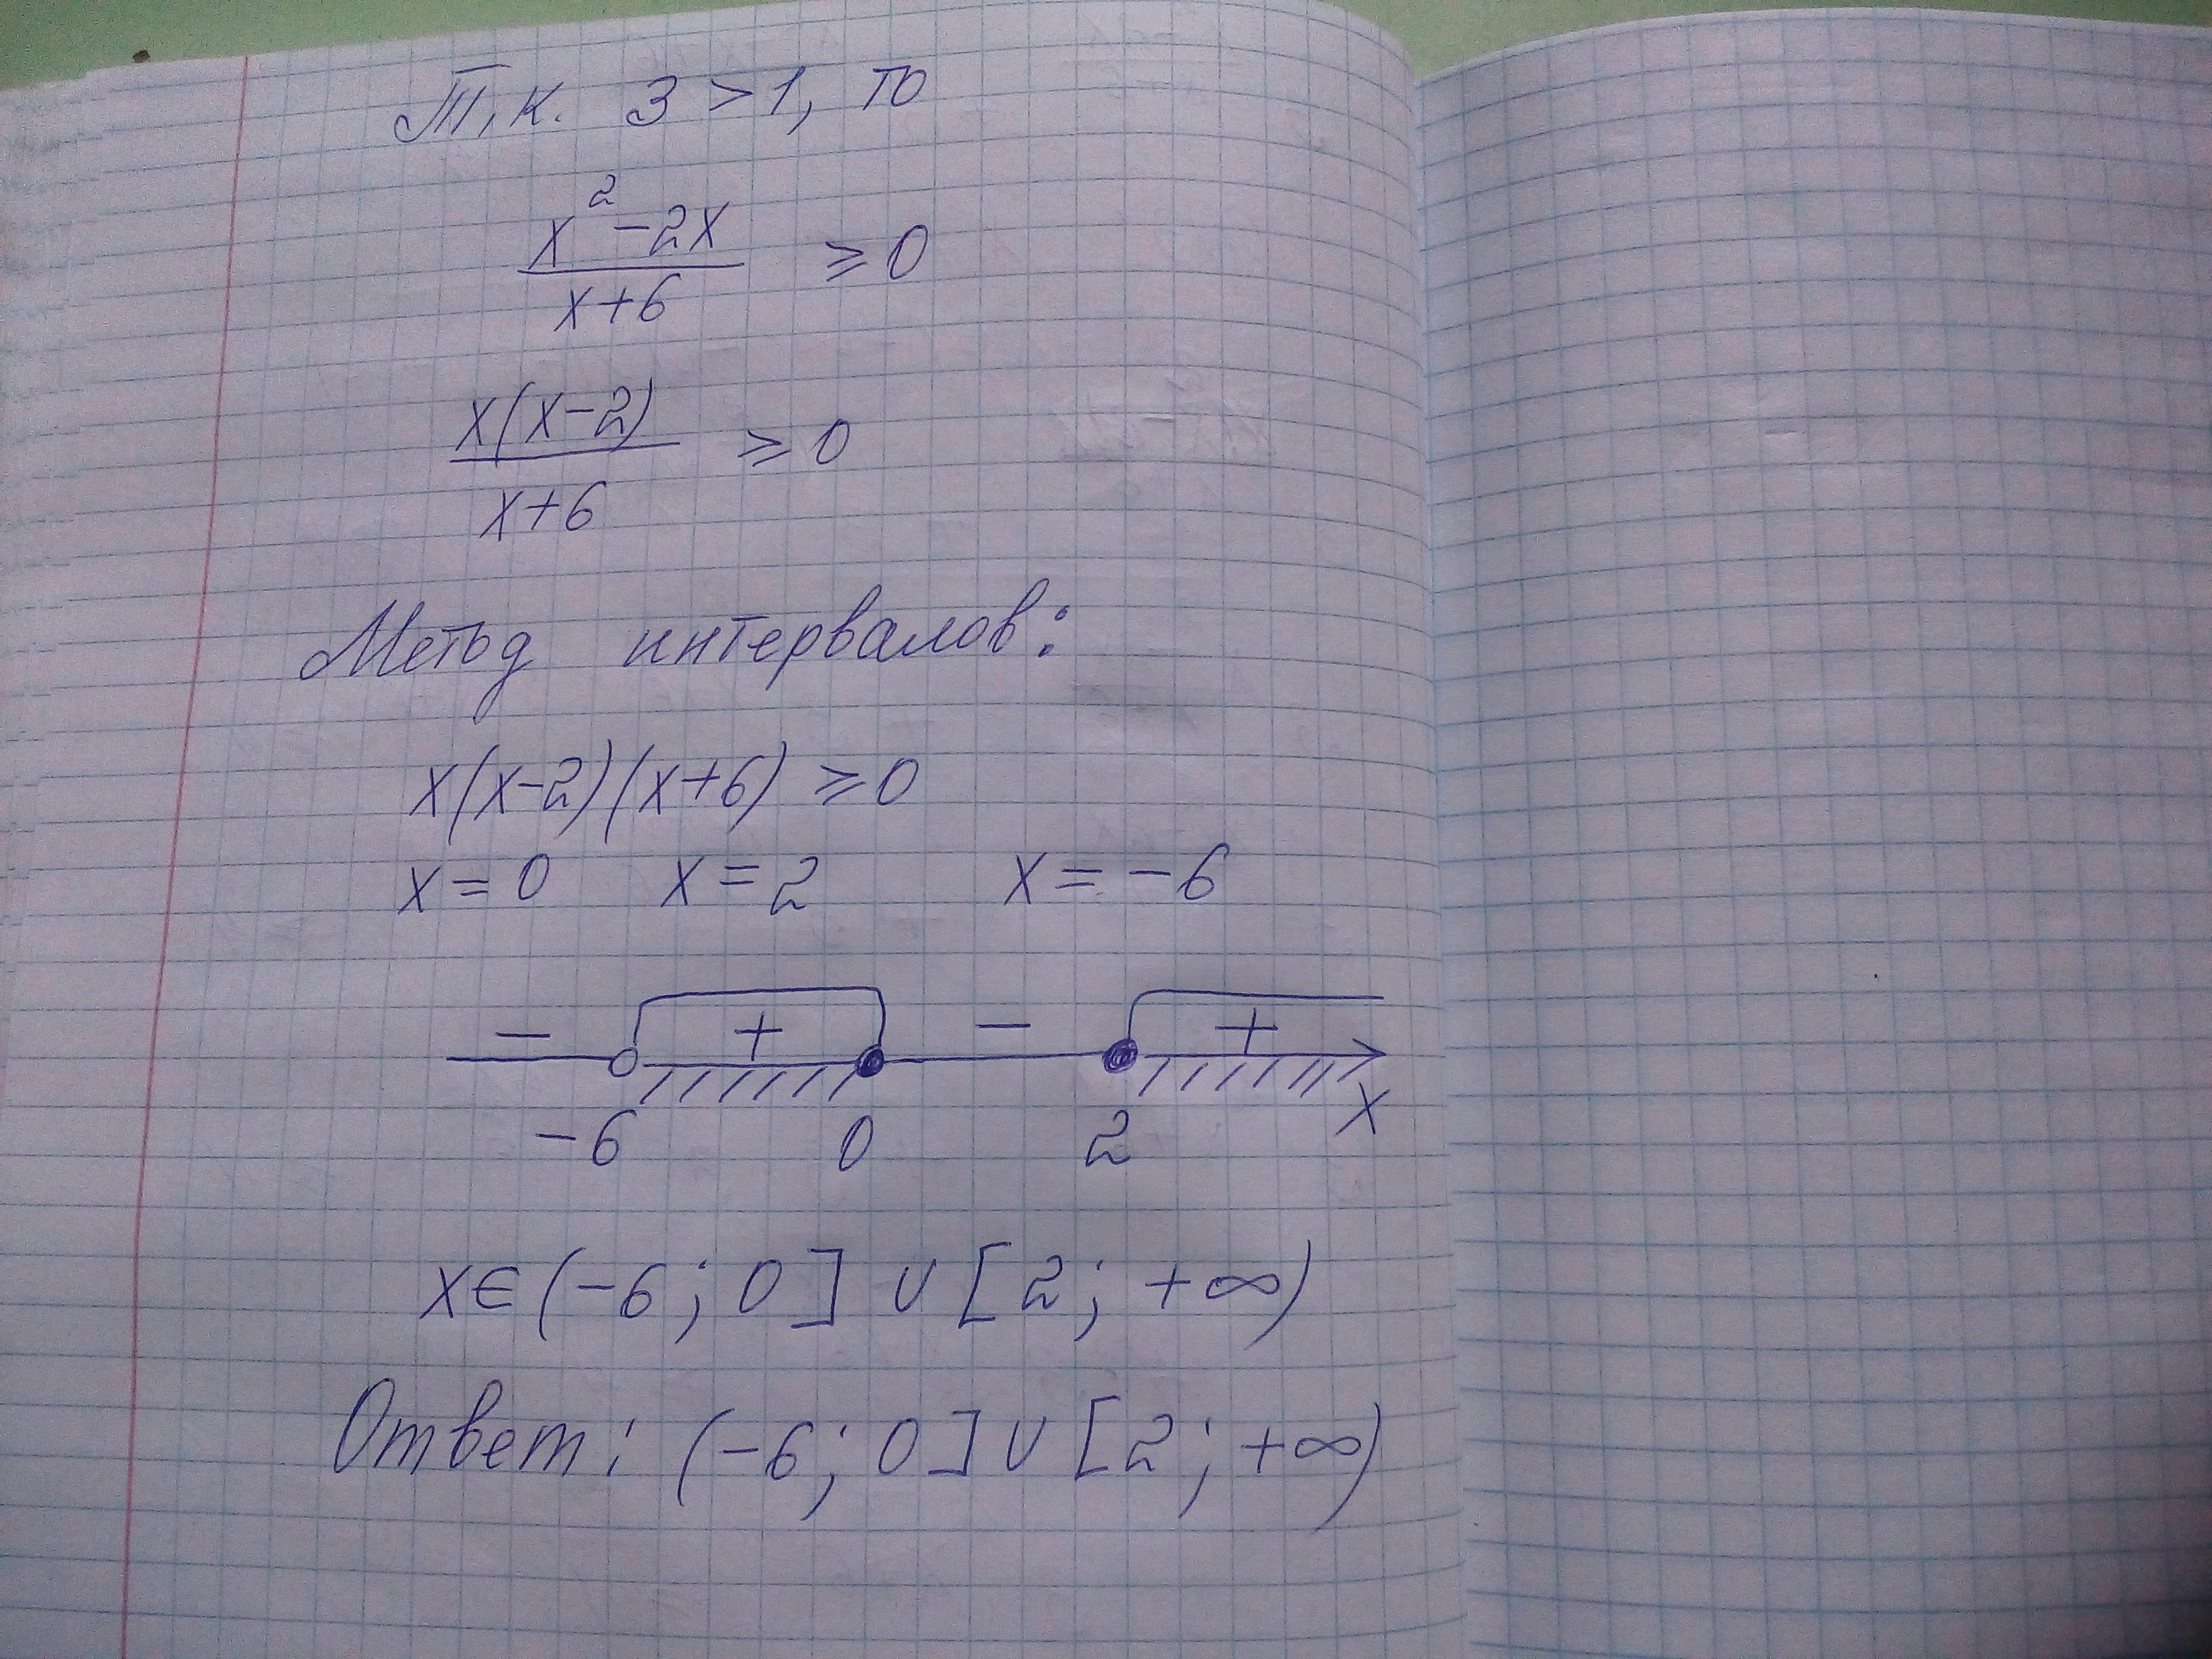 Т.к. 3 > 1, то
x² - 2x
x + 6
≥ 0
x(x-2)
x+6
≥ 0
Метод интервалов:
x(x-2)(x+6) ≥ 0
x = 0 x = 2 x = -6
- + - +
-6 0 2 x
x∈(-6; 0] ∪ [2; +∞)
Ответ: (-6; 0] ∪ [2; +∞)